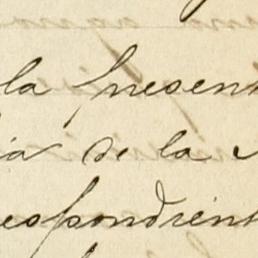 la present
ia de la
respondient